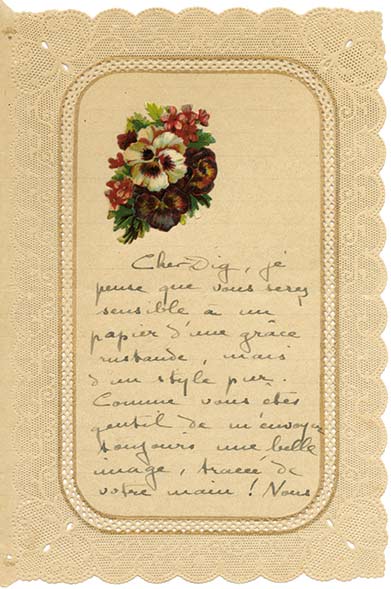 Cher Dig, je
pense que vous serez
sensible à un
papier d'une grâce
surannée, mais
d'un style pur.
Comme vous êtes
gentil de m'envoyer
toujours une belle
image, tracée de
votre main ! Nous